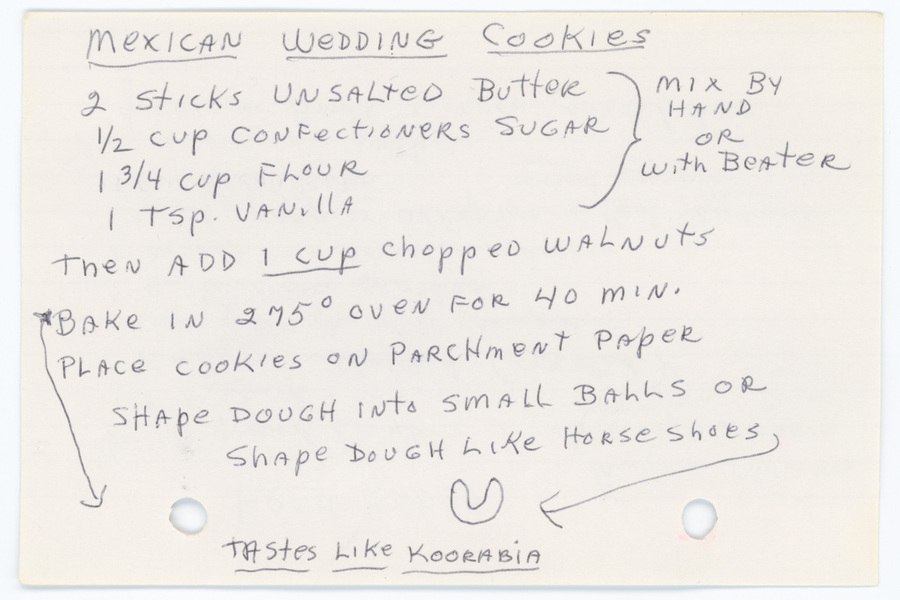 MEXICAN WEDDING COOKIES
2 STICKS UNSALTED BUTTER
1/2 CUP CONFECTIONERS SUGAR
1 3/4 CUP FLOUR
1 TSP. VANILLA
MIX BY
HAND
OR
WITH BEATER
THEN ADD 1 CUP CHOPPED WALNUTS
*BAKE IN 275° OVEN FOR 40 MIN.
PLACE COOKIES ON PARCHMENT PAPER
SHAPE DOUGH INTO SMALL BALLS OR
SHAPE DOUGH LIKE HORSE SHOES
TASTES LIKE KOORABIA